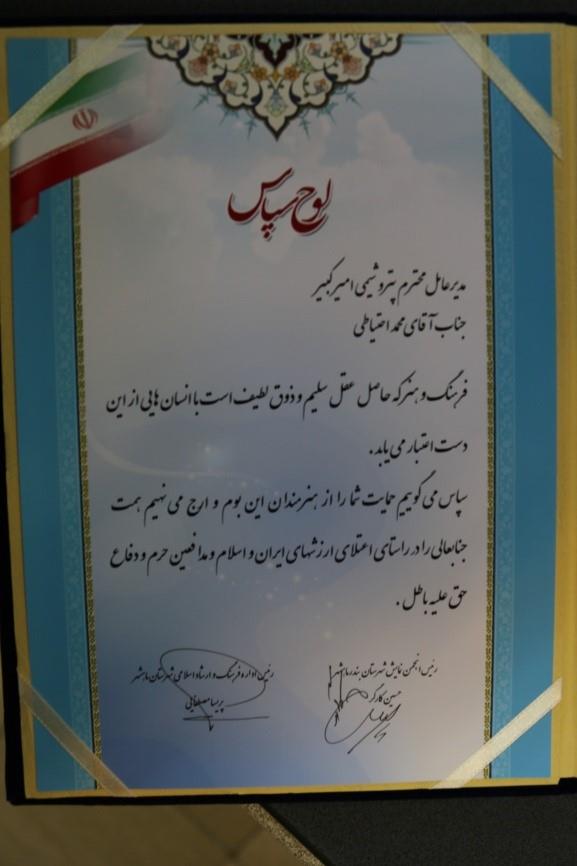 لوح سپاس
مدیرعامل محترم پتروشیمی امیرکبیر
جناب آقای محمد احتیاطی
فرهنگ و هنر که حاصل عقل سلیم و ذوق لطیف است با انسان هایی از این
دست اعتبار می یابد.
سپاس می گوییم حمایت شما را از هنرمندان این بوم و ارج می نهیم همت
جنابعالی را در راستای اعتلای ارزشهای ایران و اسلام و مدافعین حرم و دفاع
حق علیه باطل.
رئیس انجمن نمایش شهرستان بندرماهشهر
حسین کارگر
رئیس اداره فرهنگ و ارشاد اسلامی شهرستان ماهشهر
پریسا مصطفایی